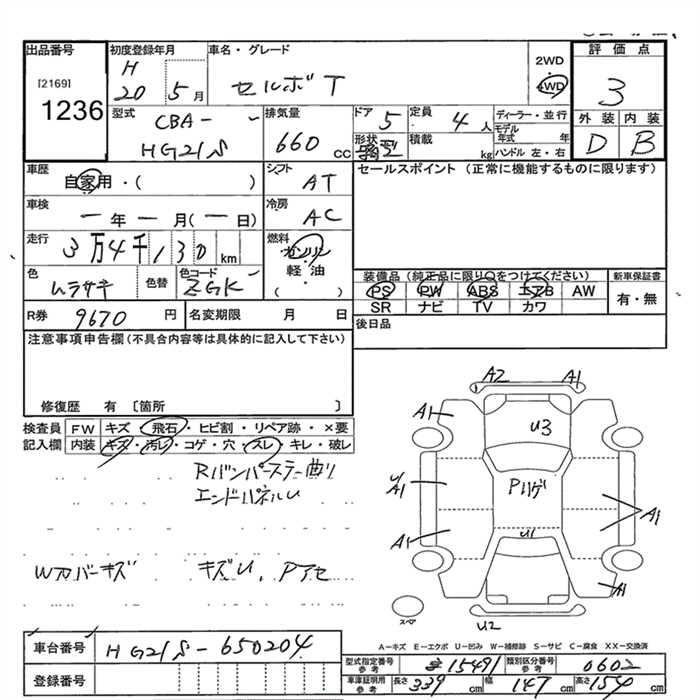 出品番号 初度登録年月 車名・グレード 2WD 評価点
[2169] H 4WD
1236 20 5月 セルボ T 3
型式 排気量 ドア 定員 ディーラー・並行 外装 内装
CBA- 660 cc 5 4人 モデル年式 年 D B
HG21S 形状 積載 kg ハンドル 左・右
車歴 自家用・( ) シフト AT セールスポイント (正常に機能するものに限ります)
車検 一年一月(一日) 冷房 AC
走行 3万4千130km 燃料 ガソリン
軽油
( )
色 ムラサキ 色替 色コード ZGK 装備品 (純正品に限り○をつけてください) 新車保証書
PS PW ABS エアB AW 有・無
SR ナビ TV カワ
R券 9670円 名変期限 月 日 後日品
注意事項申告欄(不具合内容等は具体的に記入して下さい)
修復歴 有 〔箇所 〕
検査員 FW キズ・飛石・ヒビ割・リペア跡・×要
記入欄 内装 キズ・汚レ・コゲ・穴・スレ・キレ・破レ
Rバンパーステー曲り
エンドパネルU
Wカバーキズ キズU、Pアセ
A2 A1
A1 U3
Pハゲ
A1 A1
A1 U1
A1
スペア U2
A-キズ E-エクボ U-凹み W-補修跡 S-サビ C-腐食 XX-交換済
車台番号 HG21S-650204
型式指定番号 参考 15491 類別区分番号 参考 0602
登録番号 車庫証明用 参考 長さ 339cm 幅 147cm 高さ 154cm